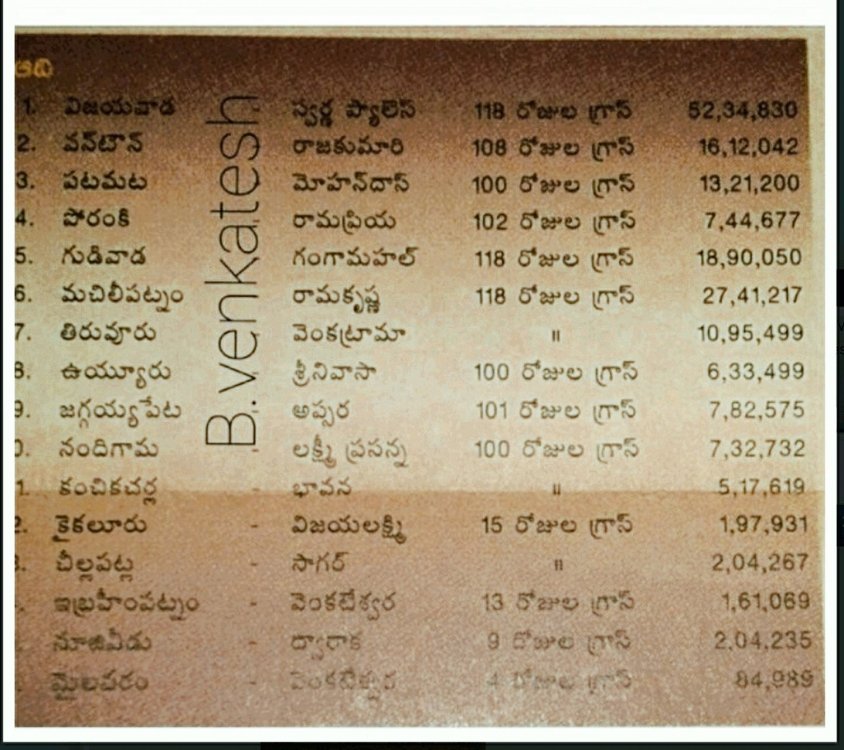 ఆది
1. విజయవాడ స్వర్ణ ప్యాలెస్ 118 రోజుల గ్రాస్ 52,34,830
2. వన్‌టౌన్ రాజకుమారి 108 రోజుల గ్రాస్ 16,12,042
3. పటమట మోహన్‌దాస్ 100 రోజుల గ్రాస్ 13,21,200
4. పోరంకి రామప్రియ 102 రోజుల గ్రాస్ 7,44,677
5. గుడివాడ గంగామహల్ 118 రోజుల గ్రాస్ 18,90,050
6. మచిలీపట్నం రామకృష్ణ 118 రోజుల గ్రాస్ 27,41,217
7. తిరువూరు వెంకట్రామా " 10,95,499
8. ఉయ్యూరు శ్రీనివాసా 100 రోజుల గ్రాస్ 6,33,499
9. జగ్గయ్యపేట - అప్సర 101 రోజుల గ్రాస్ 7,82,575
0. నందిగామ - లక్ష్మీ ప్రసన్న 100 రోజుల గ్రాస్ 7,32,732
1. కంచికచర్ల - భావన " 5,17,619
2. కైకలూరు - విజయలక్ష్మి 15 రోజుల గ్రాస్ 1,97,931
3. చీల్లపట్ల - సాగర్ " 2,04,267
. ఇబ్రహీంపట్నం - వెంకటేశ్వర 13 రోజుల గ్రాస్ 1,61,069
నూజివీడు - ద్వారాక 9 రోజుల గ్రాస్ 2,04,235
మైలవరం - వెంకటేశ్వర 4 రోజుల గ్రాస్ 84,989
B.venkatesh